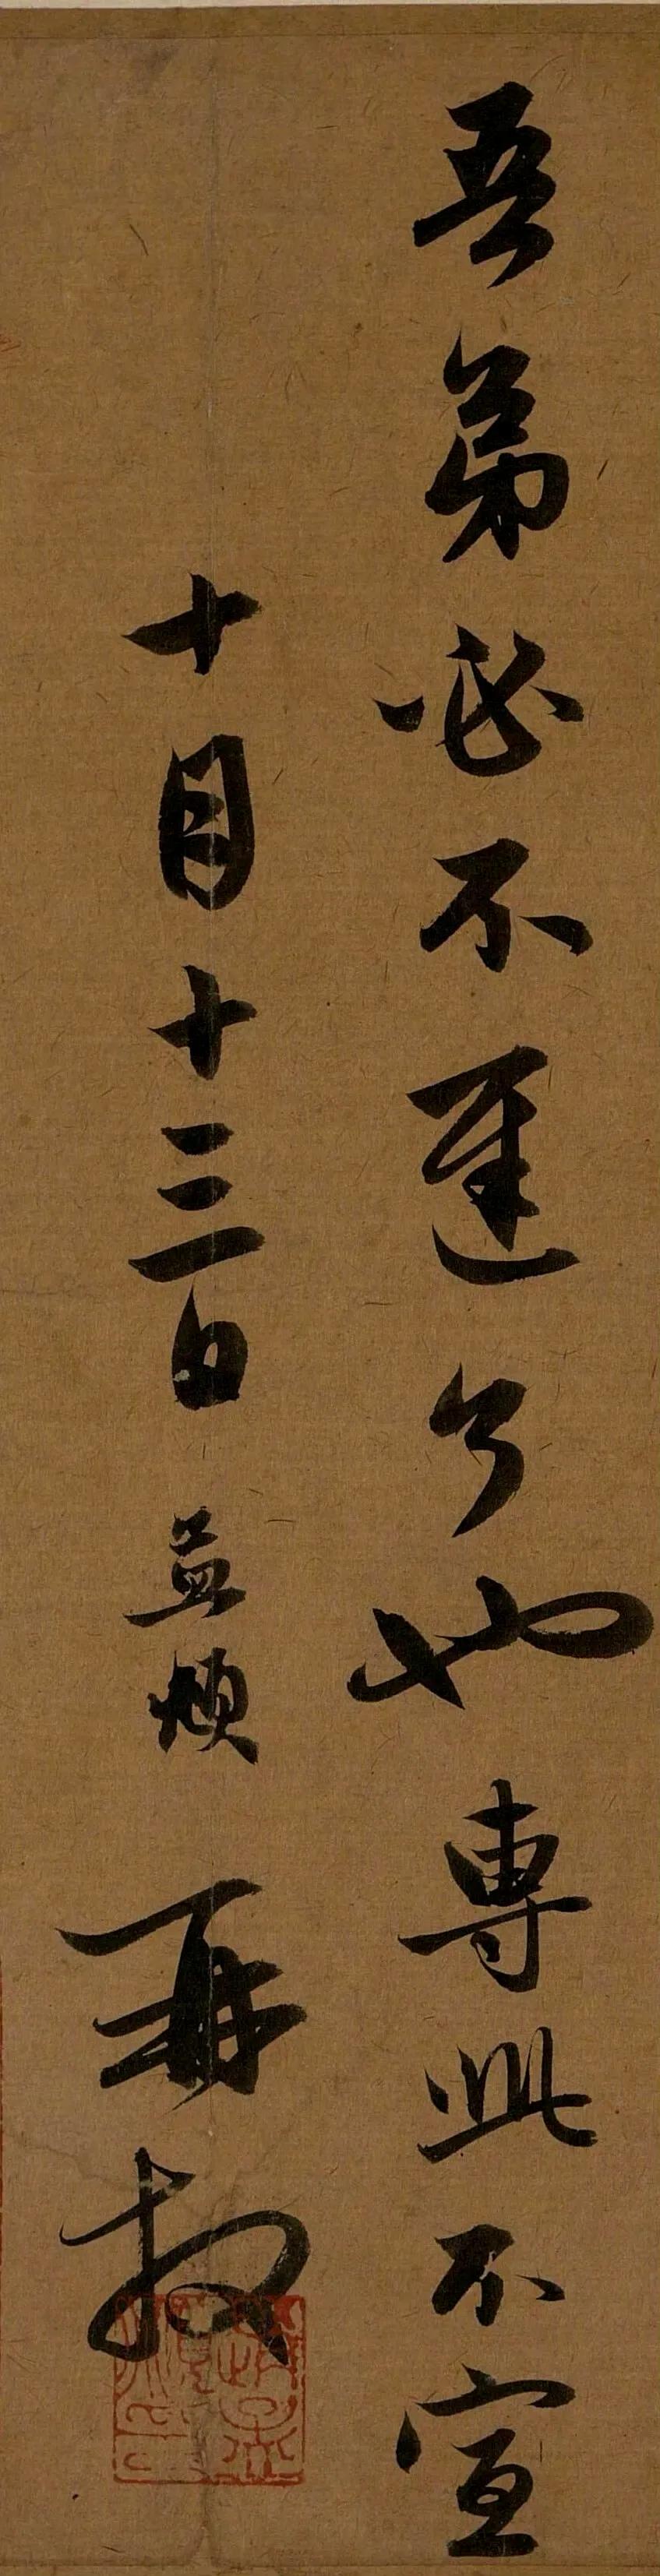 吾弟必不遲也專此不宣
十月十三日孟頫再拜